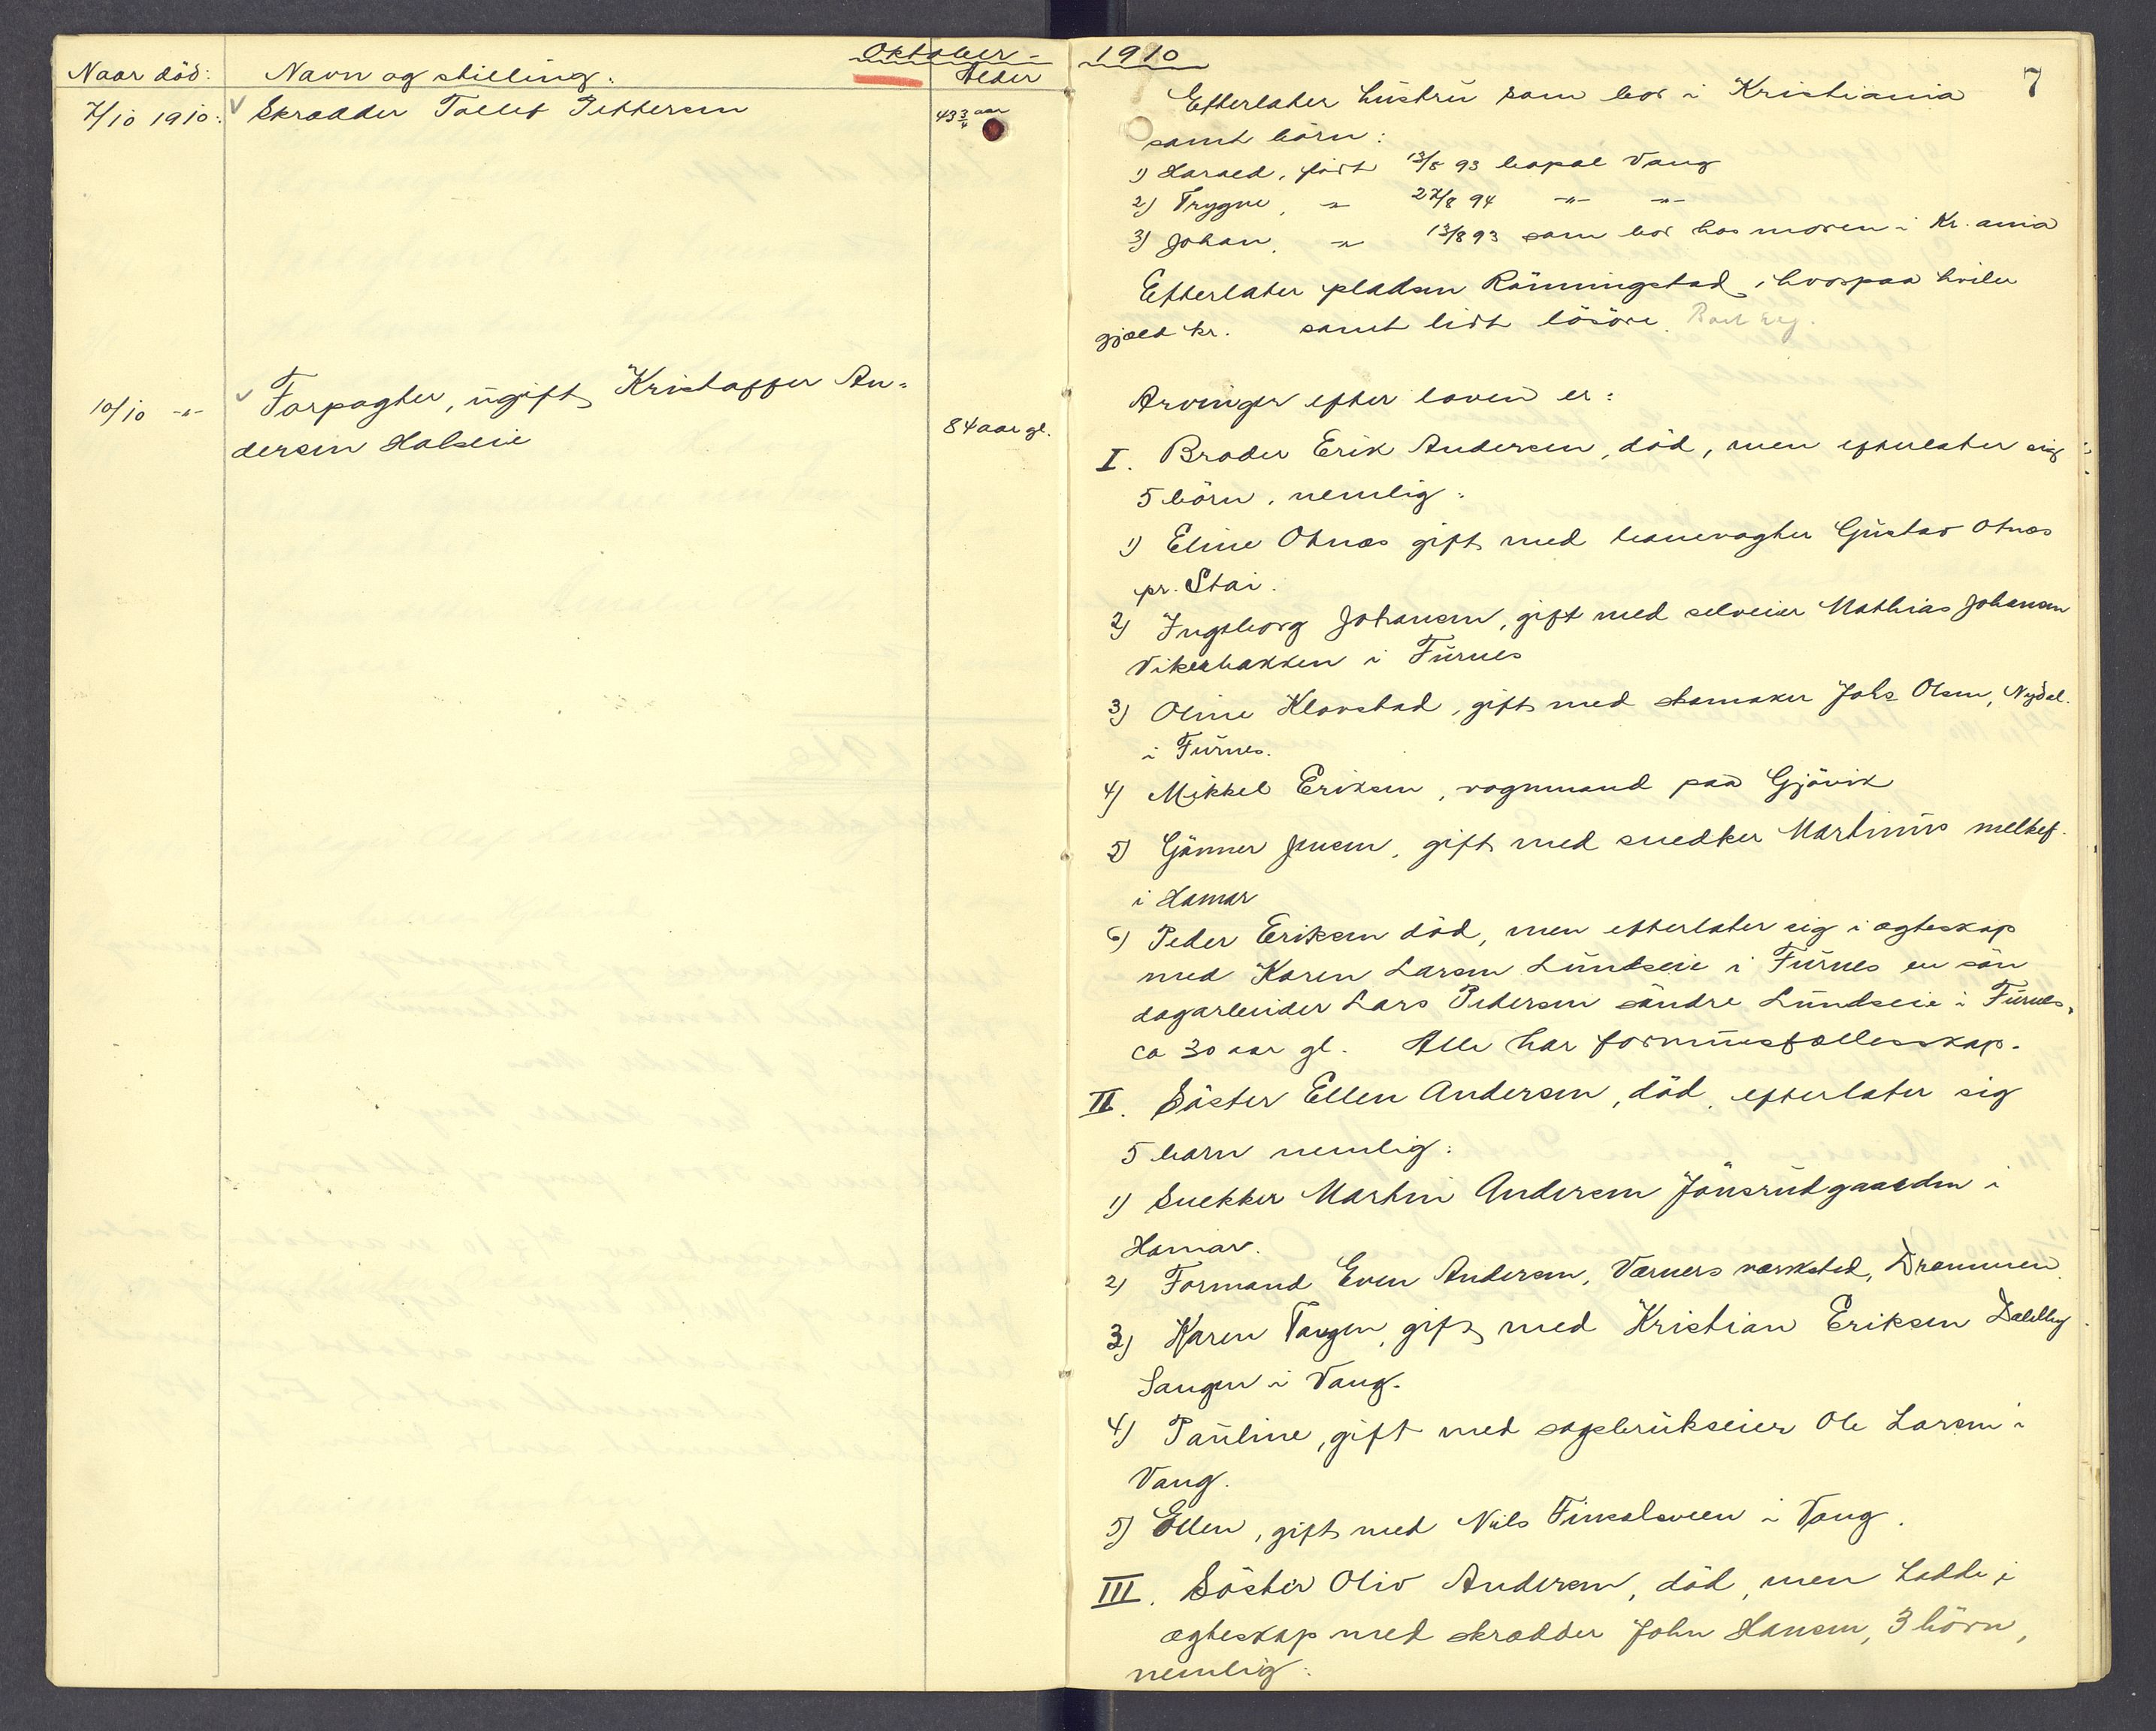 Oktober - 1910
7
Naar död: Navn og stilling: Alder
7/10 1910: Skrædder Tollef Pettersen 43 3/4 aar
10/10 -"- Forpagter, ugift, Kristoffer An-
dersen Halseie 84 aar gl.
Efterlater hustru som bor i Kristiania
samt börn:
1) Harald, födt 13/5 93 bopæl Vang
2) Trygve, " 27/8 94 -"- -"-
3) Johan, " 13/8 93 som bor hos moren i Kr.ania
Efterlater pladsen Rönningstad, hvorpaa hviler
gjæld kr. samt lidt lösöre.
Arvinger efter loven er:
I. Broder Erik Andersen, död, men efterlater sig
5 börn, nemlig:
1) Eline Otnæs gift med banevogter Gustav Otnæs
pr. Stai.
2) Ingeborg Johansen, gift med selveier Mathias Johansen
Vikerbakken i Furnes
3) Oline Klovstad, gift med skomaker Johs Olsen, Nydal.
i Furnes.
4) Mikkel Eriksen, vognmand paa Gjövik
5) Gönner Jensen, gift med snedker Martinus melkef.
i Hamar
6) Peder Eriksen död, men efterlater sig i ægteskap
med Karen Larsen Lundseie i Furnes en sön
dagarbeider Lars Pedersen söndre Lundseie i Furnes,
ca 30 aar gl. Alle har formuesfællesskap.
II. Söster Ellen Andersen, död, efterlater sig
5 barn nemlig:
1) Snekker Martin Andersen Jönsrudgaarden i
Hamar.
2) Formand Even Andersen, Værners værksted, Drammen
3) Karen Tangen, gift med Kristian Eriksen Dalby
Sangen i Vang.
4) Pauline, gift med sagbrukseier Ole Larsen i
Vang.
5) Ellen, gift med Nils Finsalsveen i Vang.
III. Söster Oliv Andersen, död, men hadde i
ægteskap med skrædder John Hansen, 3 börn,
nemlig: